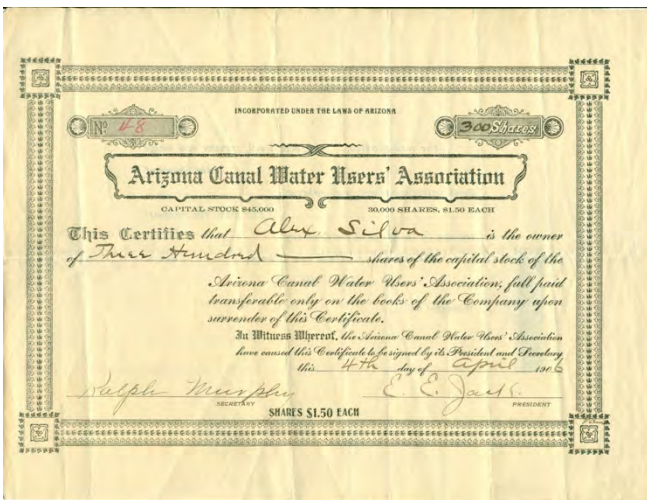 INCORPORATED UNDER THE LAWS OF ARIZONA
No 48
300 Shares
Arizona Canal Water Users' Association
CAPITAL STOCK $45,000 30,000 SHARES, $1.50 EACH
This Certifies that Alex. Silva is the owner
of Three Hundred shares of the capital stock of the
Arizona Canal Water Users' Association, full paid
transferable only on the books of the Company upon
surrender of this Certificate.
In Witness Whereof, the Arizona Canal Water Users' Association
have caused this Certificate to be signed by its President and Secretary
this 4th day of April 1906
Ralph Murphy E. E. Jack
SECRETARY PRESIDENT
SHARES $1.50 EACH